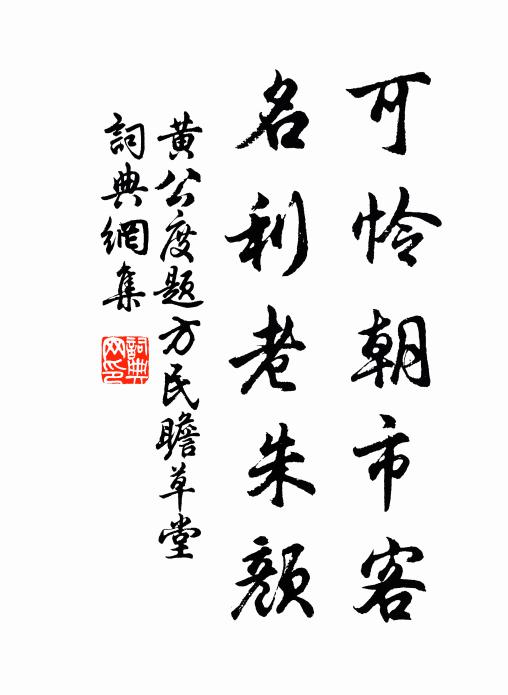 可怜朝市客
名利老朱顔
黄公度题方民瞻草堂
詞典網集
詞典网印